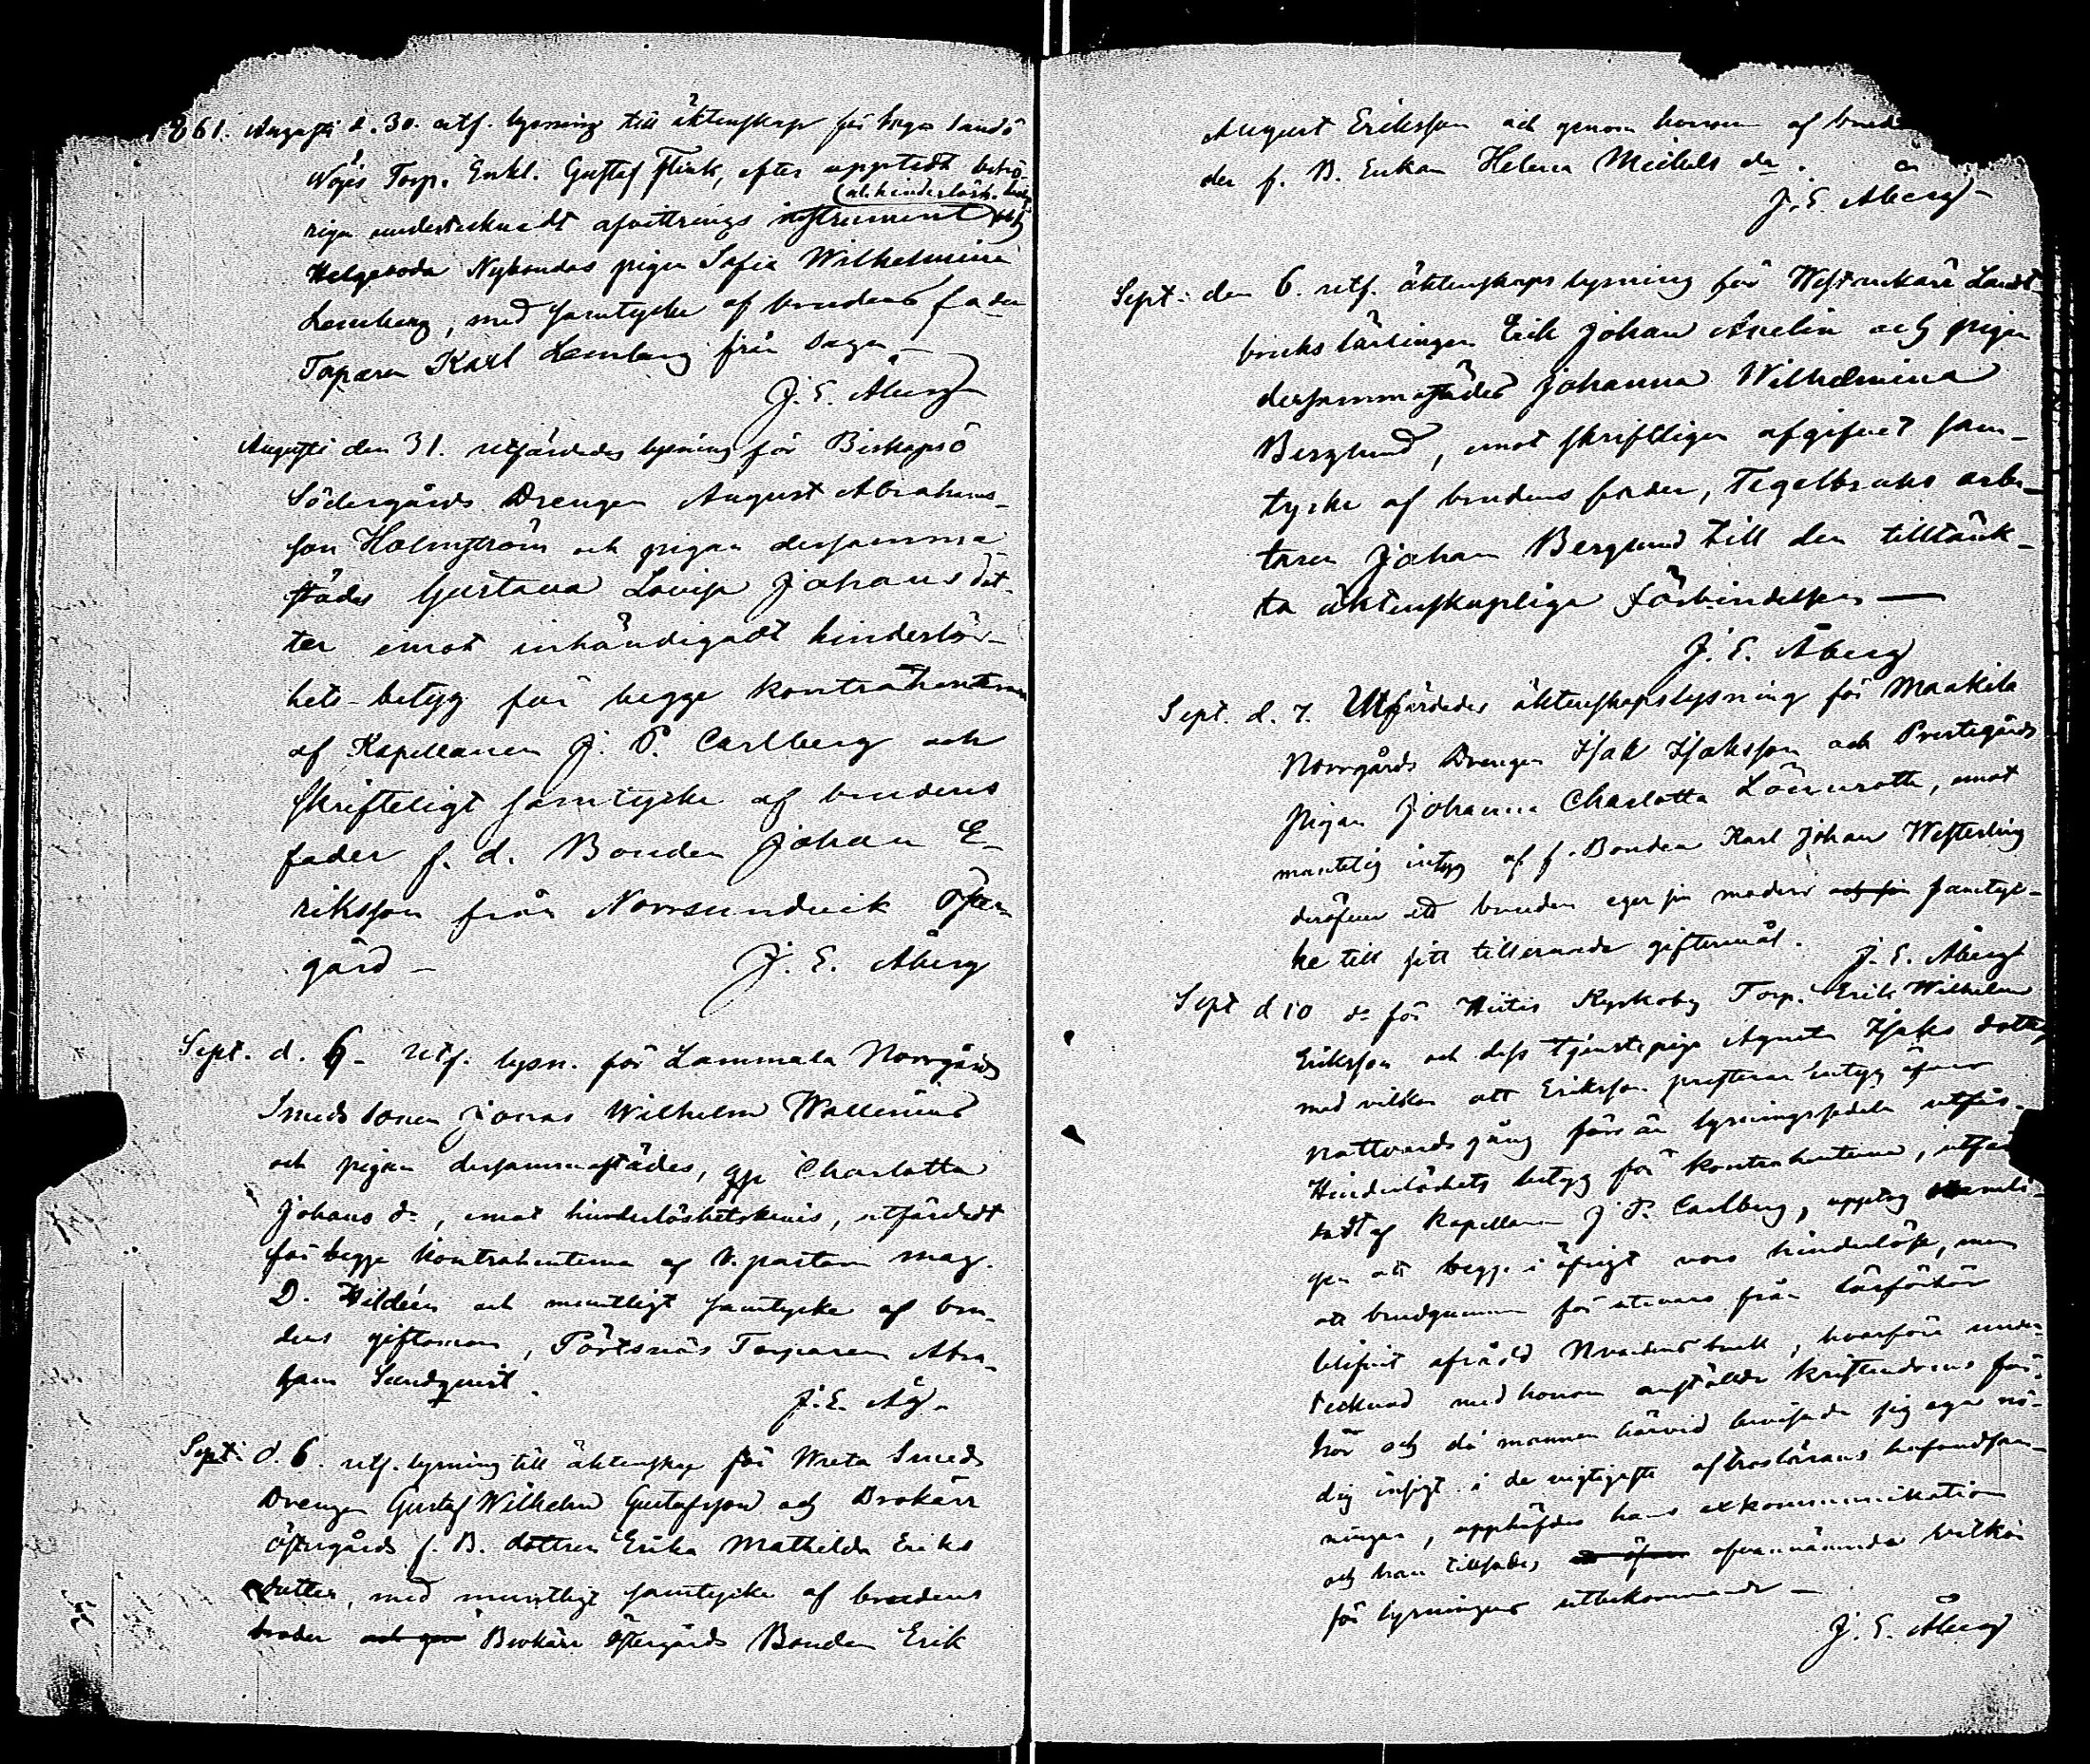 1861. Augusti d. 30. utf. lysning till äktenskap för Sagu Sandö
Nöjis Torp. Enkl. Gustaf Flink, efter uppstedt behö-
riga undertecknadt afvittrings instrument och
Helgeboda Nybondas pigan Sofia Wilhelmina
Lemberg, med samtycke af brudens fader
Torparen Karl Lemberg från Sagu.
J. E. Åberg
Augusti den 31. utfärdades lysning för Biskopsö
Södergårds Drengen August Abrahams-
son Holmström och pigan dersamma-
städes Gustava Lovisa Johansdot-
ter emot inhändigadt hinderlös-
hets-betyg för begge kontrahenterna
af Kapellanen J. P. Carlberg och
skrifteligt samtycke af brudens
fader f. d. Bonden Johan E-
riksson från Norrsundvik Öster-
gård – J. E. Åberg
Sept. d. 6. utf. lysn. för Lammala Norrgårds
Smeds sonen Jonas Wilhelm Wallenius
och pigan dersammastädes, Charlotta
Johans dr, emot hinderlöshetsbevis, utfärdadt
för begge kontrahenterna af V. pastorn mag.
D. Hildeén och muntligt samtycke af bru-
dens giftoman, Pörtsnäs Torparen Abra-
ham Sundqvist. J. E. Åbg.
Sept: d. 6. utf. lysning till äktenskap för Wreta Smeds
Drengen Gustaf Wilhelm Gustafsson och Brokärr
östergårds f. B. dottren Erika Mathilda Eriks
dotter, med muntligt samtycke af brudens
broder Brokärr östergårds Bonden Erik
August Eriksson och genom honom af brudens
der f. B. Enkan Helena Mickels dr.
J. E. Åberg
Sept: den 6. utf. äktenskaps lysning för Westankärr Landt-
bruks lärlingen Erik Johan Axelin och pigan
dersammastädes Johanna Wilhelmina
Berglund, emot skriftligen afgifvet sam-
tycke af brudens fader, Tegelbruks arbe-
taren Johan Berglund till den tilltänk-
ta äktenskapliga förbindelsen —
J. E. Åberg
Sept. d. 7. Utfärdades äktenskapslysning för Maakila
Norrgårds Drengen Isak Isaksson och Prestegårds
pigan Johanna Charlotta Lönnroth, emot
muntelig intyg af f. Bonden Karl Johan Westerling
deröfver att bruden eger sin moders samtyc-
ke till sitt tillernade giftermål. J. E. Åberg
Sept d 10 do för Hitis Kyrkoby Torp. Erik Wilhelm
Eriksson och dess tjenstepiga Agneta Isaks dotter
med vilkor att Eriksson presterar betyg öfver
nattvards gång förr än lysningssedeln utfär-
Hinderlöshets betyg för kontrahenterna, utfär-
dadt af Kapellan J. P. Carlberg, upptog
gen att begge i öfrigt voro hinderlösa, men
att brudgummen för utevaro från läsförhör
blifvit afrådd Nvardens bruk, hvarföre under-
tecknad med honom anställde kristendoms för-
hör och då mannen härvid bevisade sig ega nö-
dig insigt i de vigtigaste af troslärans hufvudsan-
ningar, upphäfdes hans exkommunikation
och han tillsades ofvannämnda vilkor
för lysningens utbekommande —
J. E. Åberg